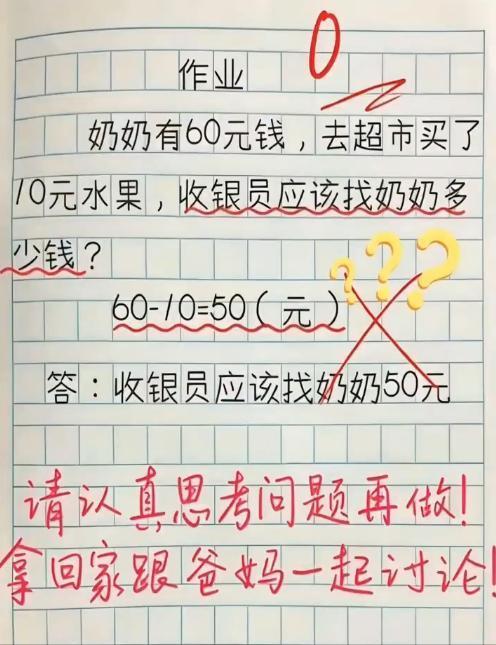 0
作业
奶奶有60元钱，去超市买了
10元水果，收银员应该找奶奶多
少钱？
???
60-10=50（元）
答：收银员应该找奶奶50元
请认真思考问题再做！
拿回家跟爸妈一起讨论！